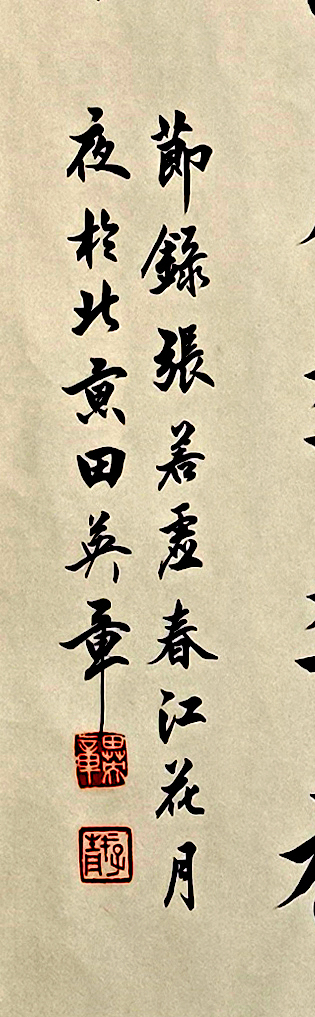 節錄張若虛春江花月
夜於北京田英章
英章